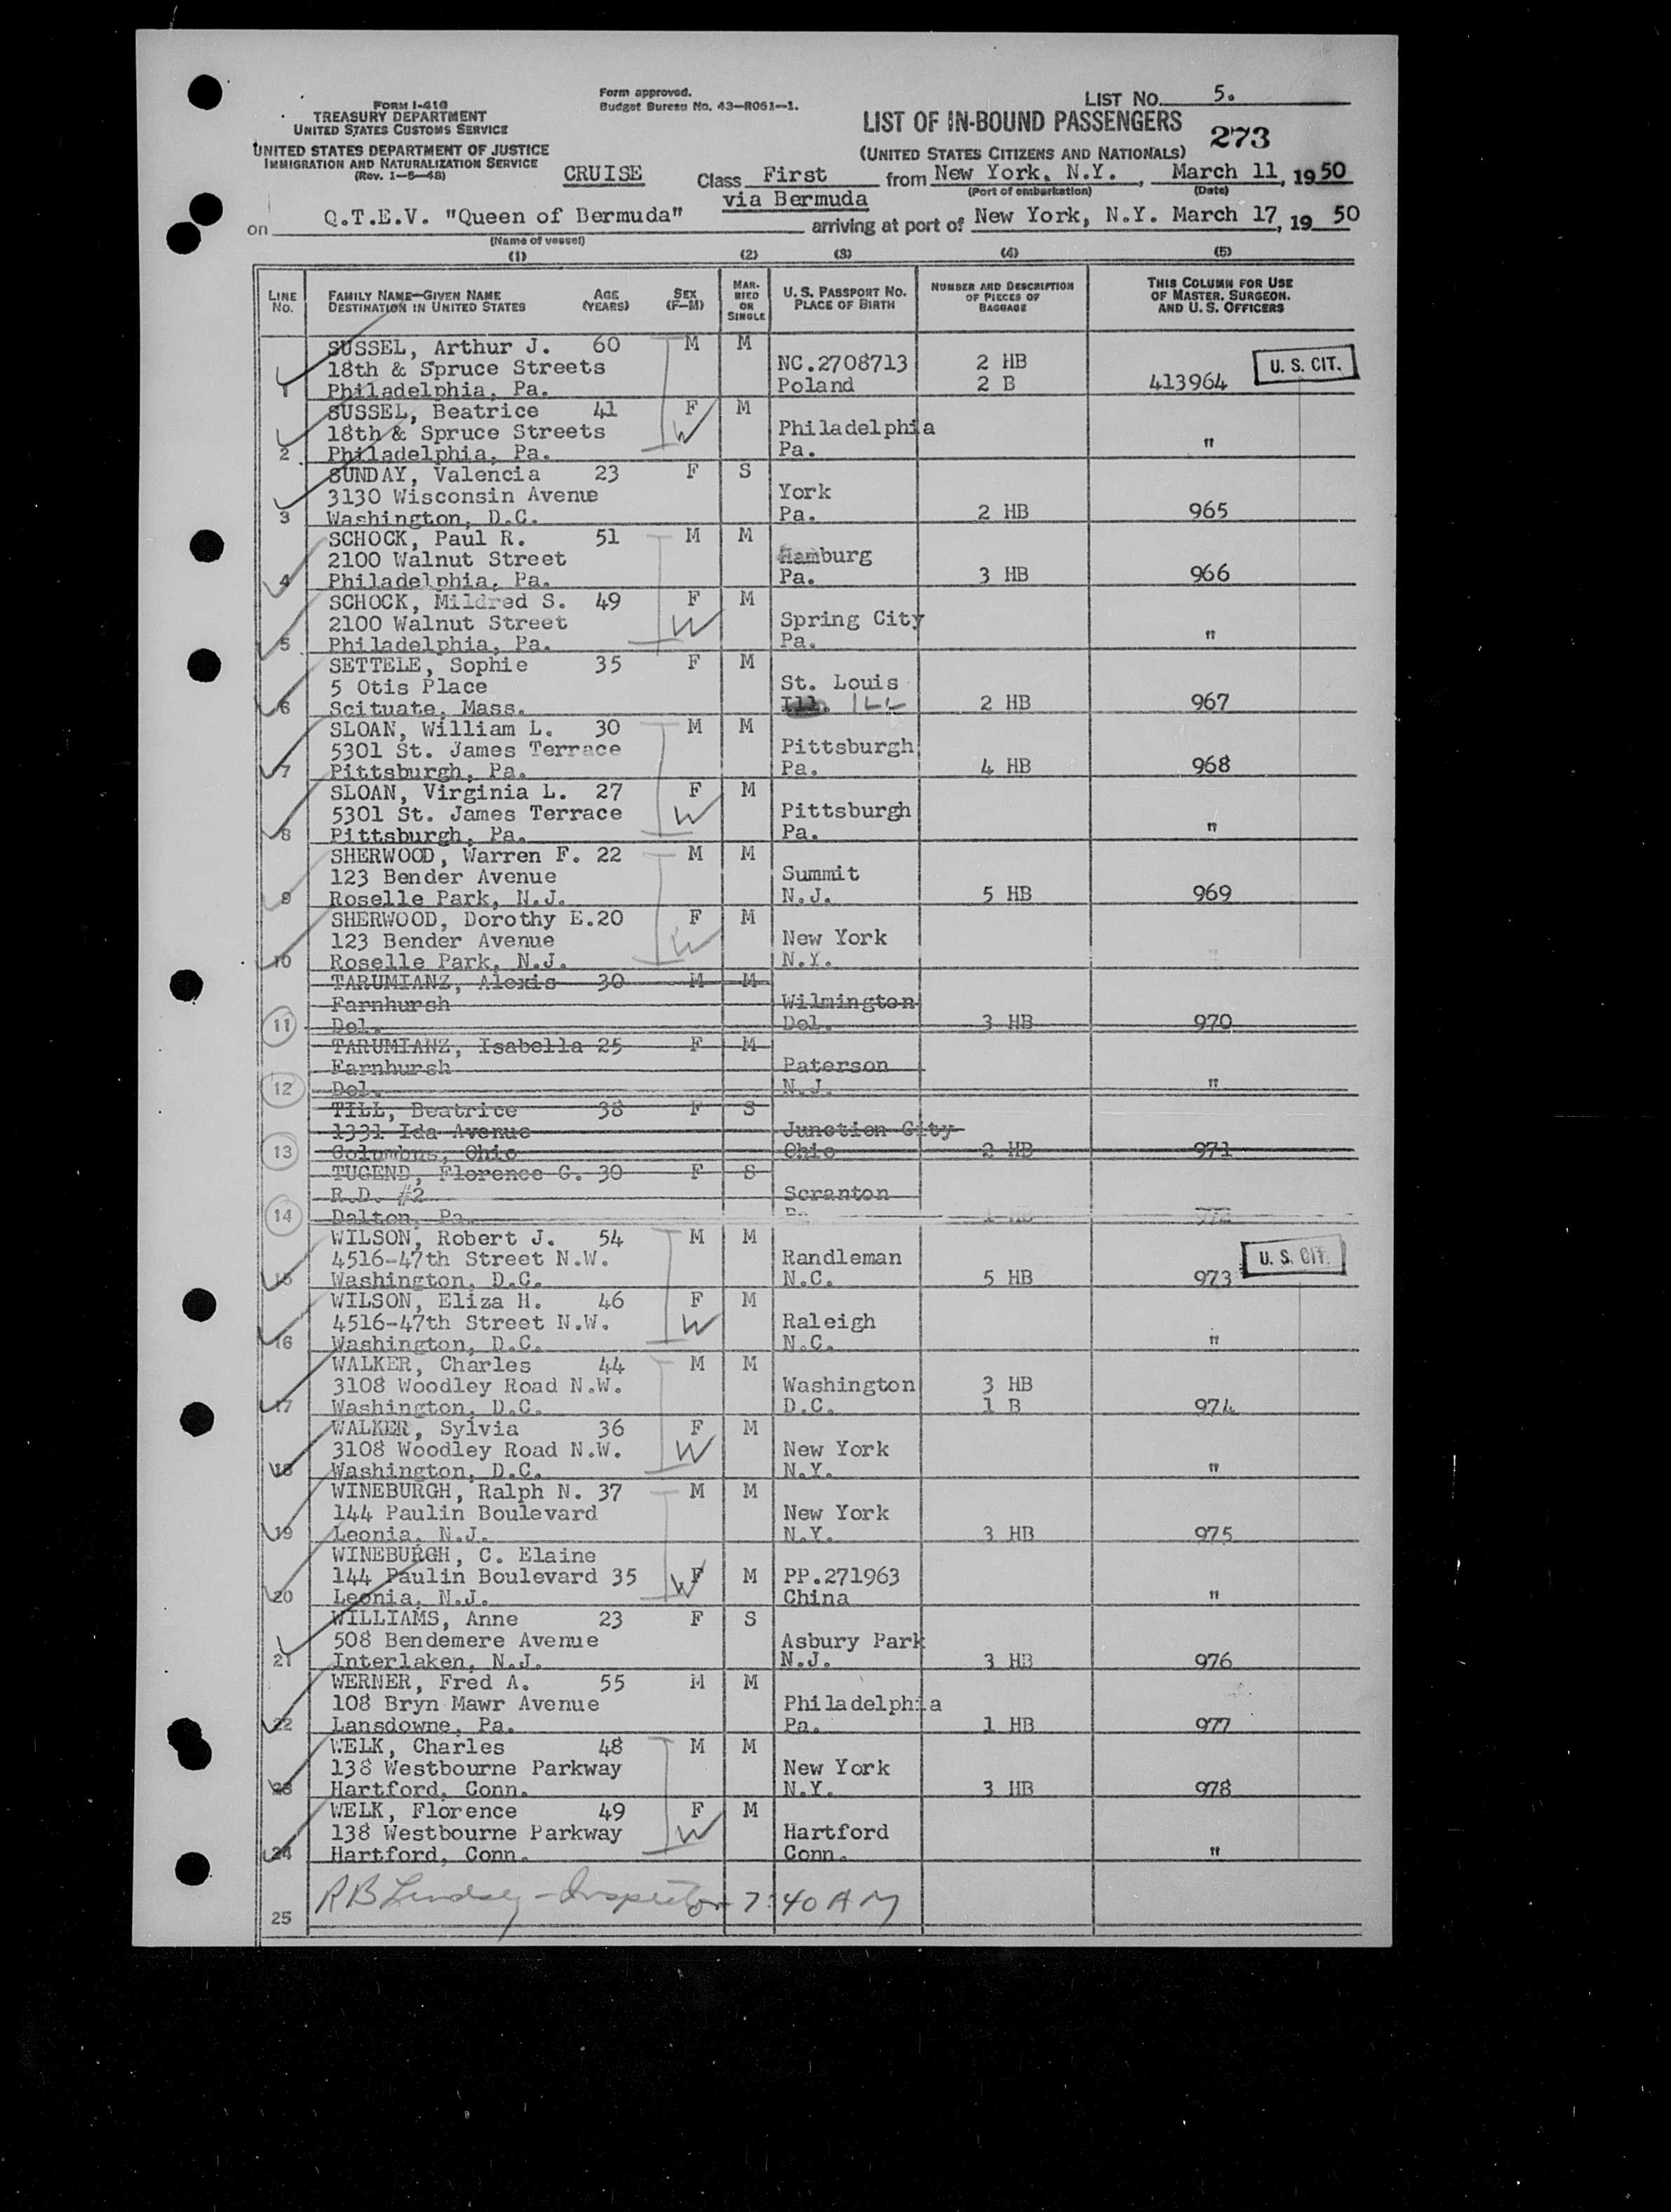 FORM I-416
TREASURY DEPARTMENT
UNITED STATES CUSTOMS SERVICE
UNITED STATES DEPARTMENT OF JUSTICE
IMMIGRATION AND NATURALIZATION SERVICE
(Rev. 1-5-48)
Form approved.
Budget Bureau No. 43-R061-1.
LIST NO. 5.
LIST OF IN-BOUND PASSENGERS
273
(UNITED STATES CITIZENS AND NATIONALS)
CRUISE Class First from New York, N.Y., March 11, 1950
(Port of embarkation) (Date)
via Bermuda
on Q.T.E.V. "Queen of Bermuda" arriving at port of New York, N.Y. March 17, 19 50
(Name of vessel)
(1) (2) (3) (4) (5)
LINE NO. FAMILY NAME—GIVEN NAME DESTINATION IN UNITED STATES AGE (YEARS) SEX (F-M) MARRIED OR SINGLE U. S. PASSPORT NO. PLACE OF BIRTH NUMBER AND DESCRIPTION OF PIECES OF BAGGAGE THIS COLUMN FOR USE OF MASTER, SURGEON, AND U. S. OFFICERS
SUSSEL, Arthur J. 60 M M
18th & Spruce Streets NC.2708713 2 HB U. S. CIT.
1 Philadelphia, Pa. Poland 2 B 413964
SUSSEL, Beatrice 41 F M
18th & Spruce Streets W Philadelphia "
2 Philadelphia, Pa. Pa.
SUNDAY, Valencia 23 F S
3130 Wisconsin Avenue York
3 Washington, D.C. Pa. 2 HB 965
SCHOCK, Paul R. 51 M M
2100 Walnut Street Hamburg
4 Philadelphia, Pa. Pa. 3 HB 966
SCHOCK, Mildred S. 49 F M
2100 Walnut Street W Spring City
5 Philadelphia, Pa. Pa. "
SETTELE, Sophie 35 F M
5 Otis Place St. Louis
6 Scituate, Mass. Ill. ILL 2 HB 967
SLOAN, William L. 30 M M
5301 St. James Terrace Pittsburgh
7 Pittsburgh, Pa. Pa. 4 HB 968
SLOAN, Virginia L. 27 F M
5301 St. James Terrace W Pittsburgh
8 Pittsburgh, Pa. Pa. "
SHERWOOD, Warren F. 22 M M
123 Bender Avenue Summit
9 Roselle Park, N.J. N.J. 5 HB 969
SHERWOOD, Dorothy E. 20 F M
123 Bender Avenue W New York
10 Roselle Park, N.J. N.Y. "
TARUMIANZ, Alexis 30 M M
Farnhursh Wilmington
11 Del. Del. 3 HB 970
TARUMIANZ, Isabella 25 F M
Farnhursh Paterson
12 Del. N.J. "
TILL, Beatrice 38 F S
1331 Ida Avenue Junction City
13 Columbus, Ohio Ohio 2 HB 971
TUGEND, Florence G. 30 F S
R.D. #2 Scranton
14 Dalton, Pa. Pa. 1 HB 972
WILSON, Robert J. 54 M M
4516-47th Street N.W. Randleman U. S. CIT.
15 Washington, D.C. N.C. 5 HB 973
WILSON, Eliza H. 46 F M
4516-47th Street N.W. W Raleigh
16 Washington, D.C. N.C. "
WALKER, Charles 44 M M
3108 Woodley Road N.W. Washington 3 HB
17 Washington, D.C. D.C. 1 B 974
WALKER, Sylvia 36 F M
3108 Woodley Road N.W. W New York
18 Washington, D.C. N.Y. "
WINEBURGH, Ralph N. 37 M M
144 Paulin Boulevard New York
19 Leonia, N.J. N.Y. 3 HB 975
WINEBURGH, C. Elaine
144 Paulin Boulevard 35 W F M PP.271963
20 Leonia, N.J. China "
WILLIAMS, Anne 23 F S
508 Bendemere Avenue Asbury Park
21 Interlaken, N.J. N.J. 3 HB 976
WERNER, Fred A. 55 M M
108 Bryn Mawr Avenue Philadelphia
22 Lansdowne, Pa. Pa. 1 HB 977
WELK, Charles 48 M M
138 Westbourne Parkway New York
23 Hartford, Conn. N.Y. 3 HB 978
WELK, Florence 49 F M
138 Westbourne Parkway W Hartford
24 Hartford, Conn. Conn. "
RB Lindsey - Inspector 7:40 AM
25